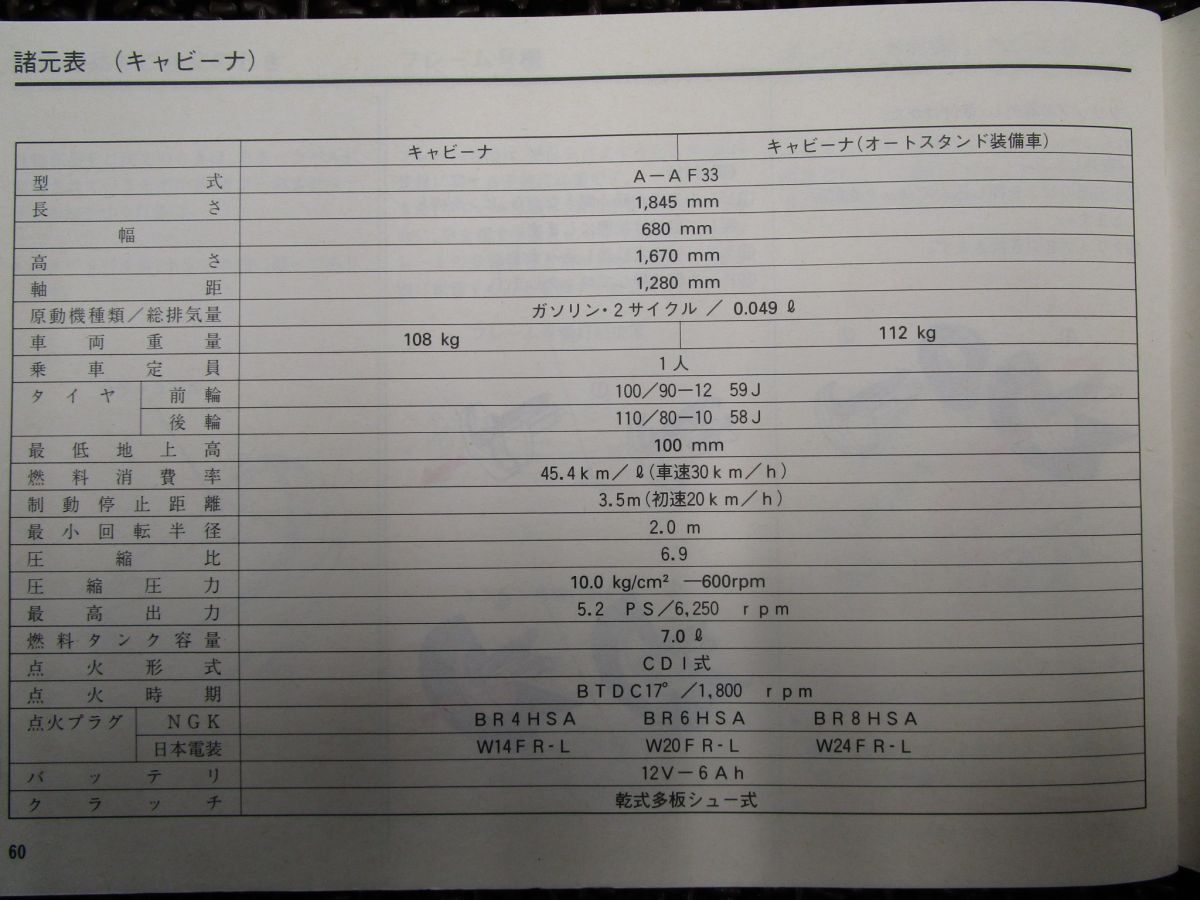 諸元表 (キャビーナ)
キャビーナ キャビーナ(オートスタンド装備車)
型式 A－AF33
長さ 1,845 mm
幅 680 mm
高さ 1,670 mm
軸距 1,280 mm
原動機種類／総排気量 ガソリン・2サイクル ／ 0.049 ℓ
車両重量 108 kg 112 kg
乗車定員 1人
タイヤ 前輪 100／90－12 59J
後輪 110／80－10 58J
最低地上高 100 mm
燃料消費率 45.4km／ℓ(車速30km／h)
制動停止距離 3.5m(初速20km／h)
最小回転半径 2.0 m
圧縮比 6.9
圧縮圧力 10.0 kg/cm² —600rpm
最高出力 5.2 PS／6,250 rpm
燃料タンク容量 7.0 ℓ
点火形式 CDI式
点火時期 BTDC17° ／1,800 rpm
点火プラグ NGK BR4HSA BR6HSA BR8HSA
日本電装 W14FR-L W20FR-L W24FR-L
バッテリ 12V－6Ah
クラッチ 乾式多板シュー式
60